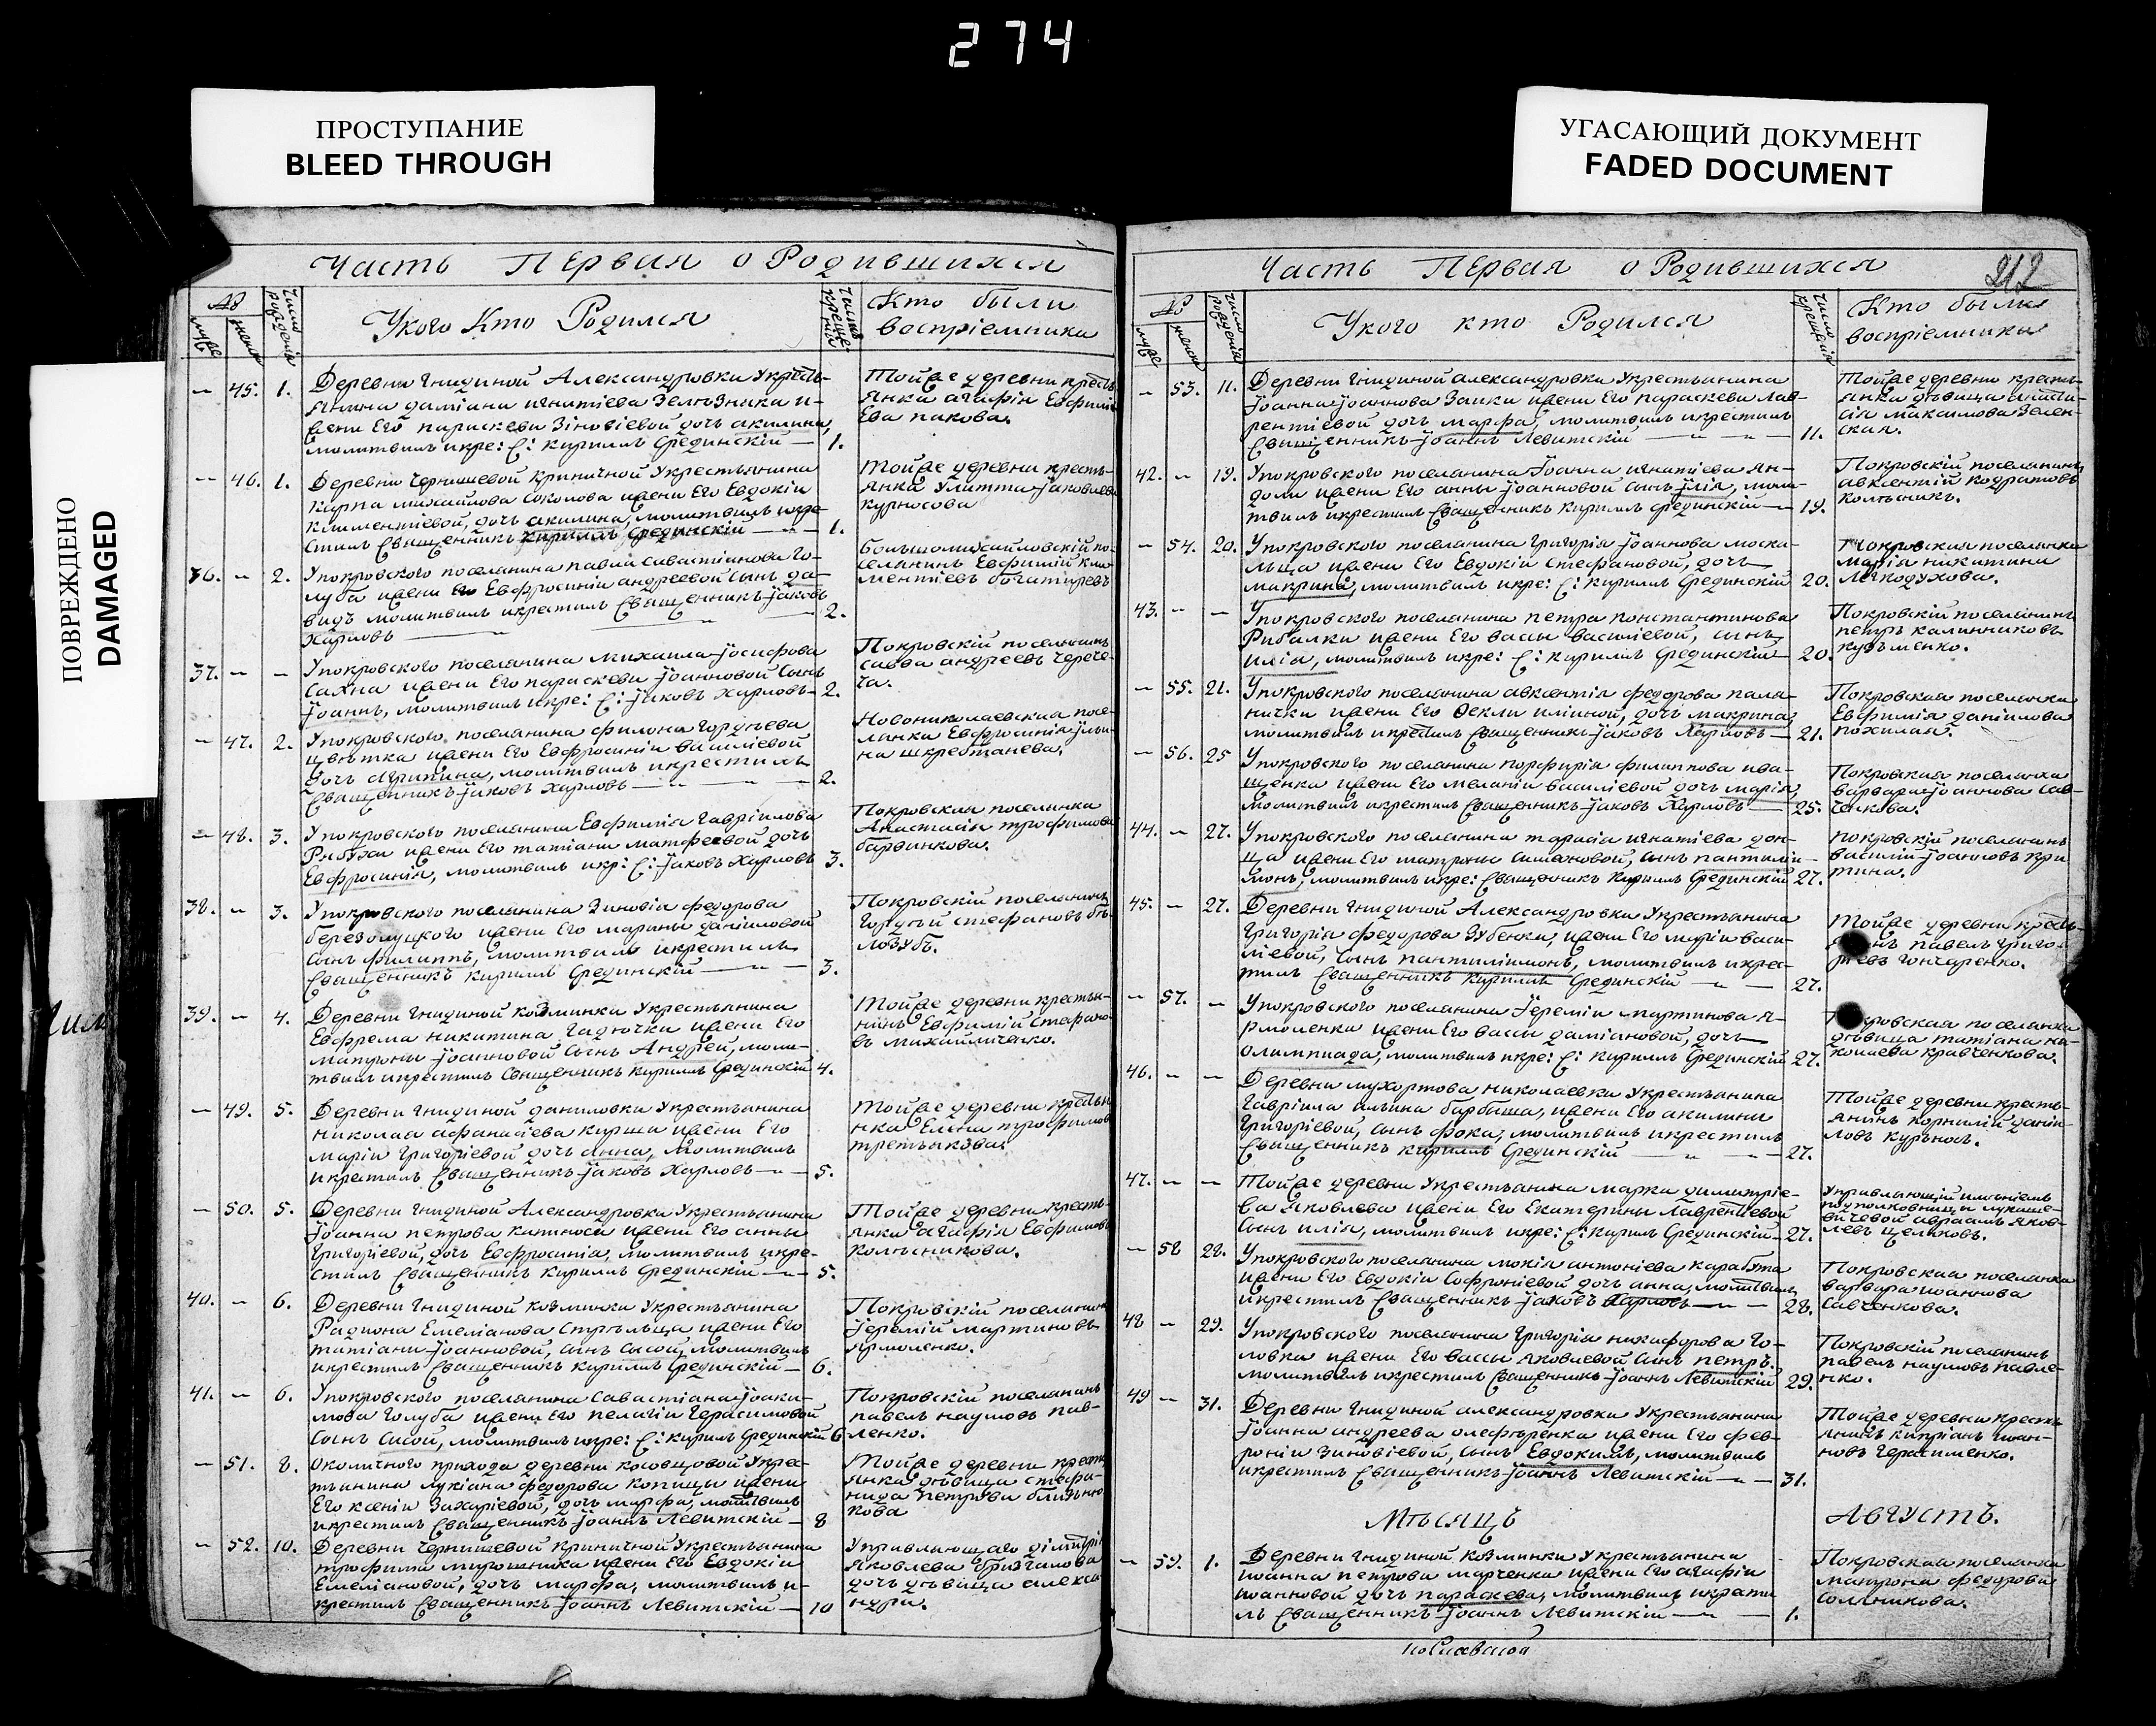 274
ПРОСТУПАНИЕ
BLEED THROUGH
УГАСАЮЩИЙ ДОКУМЕНТ
FADED DOCUMENT
ПОВРЕЖДЕНО
DAMAGED
Часть Первая о Родившихся
№
Число рожденія
У кого Кто Родился
Число крещенія
Кто были
воспріемники
— 45. 1. Деревни Гнидиной Александровки Укресть-
янина Даміана Игнатіева Зелезняка и
жени Его Параскеви Зіновіевой дочь Акилина,
молитвилъ и кре: С: Кириллъ Срединскій — 1.
Тойже деревни кресть
янка Агафія Евфимі
ева Пакова.
— 46. 1. Деревни Чернишевой Криничной Укрестьянина
Карпа Михайлова Соколова и жени Его Евдокіи
Климентіевой, дочь Акилина, молитвилъ и кре-
стилъ Священникъ Кириллъ Срединскій — 1.
Тойже деревни кресть-
янка Улитта Іаковлева
Курносова
36. — 2. Упокровского поселянина Павла Савастіанова Го-
луба и жени Его Евфросиніи Андреевой сынъ Да-
видъ молитвилъ и крестилъ Священникъ Іаковъ
Харловъ — 2.
Большемихайловскій по-
селянинъ Евфимій Кли
ментіевъ Богатиревъ
37. — — Упокровского поселянина Михаила Іосифова
Сахна и жени Его Параскеви Іоанновой сынъ
Іоаннъ, молитвилъ и кре: С: Іаковъ Харловъ — 2.
Покровскій поселянинъ
Савва Андреевъ Черече-
ча.
— 47. 2. Упокровского поселянина Филона Гордѣева
Цвѣтка и жени Его Евфросиніи Василіевой
дочь Агрипина, молитвилъ и крестилъ
Священникъ Іаковъ Харловъ — 2.
Новониколаевская посе-
лянка Евфросинія Ульи-
на Шкребтанева.
— 48. 3. Упокровского поселянина Евфимія Гавріилова
Рябухи и жени Его Татіани Матфеевой дочь
Евфросинія, молитвилъ и кр: С: Іаковъ Харловъ 3.
Покровская поселянка
Анастасія Трофимова
Барвинкова.
38. — 3. Упокровского поселянина Зиновія Федорова
Березолуцкого и жени Его Марины Даніиловой
сынъ Филиппъ, молитвилъ и крестилъ
Священникъ Кириллъ Срединскій — 3.
Покровскій поселянинъ
Гордѣй Стефановъ Бѣ-
лозубъ.
39. — 4. Деревни Гнидиной Козминки Укрестьянина
Евфрема Никитина Гадючки и жени Его
Матроны Іоанновой сынъ Андрей, моли-
твилъ и крестилъ Священникъ Кириллъ Срединскій 4.
Тойже деревни крестья-
нинъ Евфимій Стефано-
въ Михайличенко.
— 49. 5. Деревни Гнидиной Даниловки Укрестьянина
Николая Афанасіева Курша и жени Его
Маріи Григоріевой дочь Анна, Молитвилъ
и крестилъ Священникъ Іаковъ Харловъ — 5.
Тойже деревни крестья
нка Елена Трофимова
Третьякова.
— 50. 5. Деревни Гнидиной Александровки Укрестьянина
Іоанна Петрова Катноса и жени Его Анны
Григоріевой, дочь Евфросинія, молитвилъ и кре-
стилъ Священникъ Кириллъ Срединскій — 5.
Тойже деревни кресть-
янка Агафія Евфимова
Колѣсникова.
40. — 6. Деревни Гнидиной Козминки Укрестьянина
Радиона Емеліанова Стрѣльца и жени Его
Татіани Іоанновой, сынъ Сисой, молитвилъ
и крестилъ Священникъ Кириллъ Срединскій — 6.
Покровскій поселянинъ
Іеремій Мартиновъ
Ярмоленко.
41. — 6. Упокровского поселянина Савастіана Іоаки-
мова Голуба и жени Его Пелагіи Герасимовой
сынъ Сисой, молитвилъ и кре: С: Кириллъ Срединскій 6
Покровскій поселянинъ
Павелъ Наумовъ Пав-
ленко.
— 51. 8. Околичного прихода деревни Косовцовой Укрес-
тьянина Лукіана Федорова Копицы и жени
Его Ксеніи Захаріевой, дочь Марфа, молитвилъ
и крестилъ Священникъ Іоаннъ Левитскій — 8
Тойже деревни кресть
янка дѣвица Стефа-
нида Петрова Близню
кова
— 52. 10. Деревни Чернишевой Криничной Укрестьянина
Трофима Мирошника и жени Его Евдокіи
Емеліановой, дочь Марфа, молитвилъ и
крестилъ Священникъ Іоаннъ Левитскій — 10
Управляющаго Димитрія
Яковлева Бризгалова
дочь дѣвица Алекса
ндра.
Часть Первая о Родившихся
212
№
Число рожденія
У кого кто Родился
Число крещенія
Кто были
воспріемники
— 53. 11. Деревни Гнидиной Александровки Укрестьянина
Іоанна Іоаннова Заики и жени Его Параскеви Лав-
рентіевой дочь Марфа, молитвилъ и крестилъ
Священникъ Іоаннъ Левитскій — 11.
Тойже деревни кресть-
янка дѣвица Анаста-
сія Максимова Зелен-
ская.
42. — 19. Упокровского поселянина Іоанна Игнатіева Ян-
доли и жени Его Анны Іоанновой сынъ Илія, моли-
твилъ и крестилъ Священникъ Кириллъ Срединскій — 19.
Покровскій поселянинъ
Авксентій Кодратовъ
Колѣсникъ.
— 54. 20. Упокровского поселянина Григорія Іоаннова Моска-
льца и жени Его Евдокіи Стефановой, дочь
Макрина, молитвилъ и кре: С: Кириллъ Срединскій 20.
Покровская поселянка
Марія Никитина
Легкодухова.
43. — — Упокровского поселянина Петра Константинова
Рибалки и жени Его Вассы Василіевой, сынъ
Илія, молитвилъ и кре: С: Кириллъ Срединскій — 20.
Покровскій поселянинъ
Петръ Калинниковъ
Кузьменко.
— 55. 21. Упокровского поселянина Авксентія Федорова Пала-
нички и жени Его Феклы Иліиной, дочь Макрина,
молитвилъ и крестилъ Священникъ Іаковъ Харловъ — 21.
Покровская поселянка
Евфимія Даніилова
Похилая.
— 56. 25 Упокровского поселянина Порфирія Филиппова Ива-
щенка и жени Его Меланіи Василіевой дочь Марія,
молитвилъ и крестилъ Священникъ Іаковъ Харловъ — 25.
Покровская поселянка
Варвара Іоаннова Сав-
ченкова.
44. — 27. Упокровского поселянина Тарасія Игнатіева Дон-
ца и жени Его Матроны Симоновой, сынъ Пантилии-
монъ, молитвилъ и кре: Священникъ Кириллъ Срединскій 27.
Покровскій поселянинъ
Василій Іоанновъ Кри
тина.
45. — 27. Деревни Гнидиной Александровки Укрестьянина
Григорія Федорова Зубенка, и жени Его Маріи Васи-
ліевой, сынъ Пантилиимонъ, молитвилъ и крес-
тилъ Священникъ Кириллъ Срединскій — 27.
Тойже деревни кресть-
нъ Павелъ Григо-
рѣевъ Гончаренко.
— 57. — Упокровского поселянина Іереміи Мартинова Я-
рмоленка и жени Его Вассы Даміановой, дочь
Олимпиада, молитвилъ и кре: С: Кириллъ Срединскій 27.
Покровская поселянка
дѣвица Татіана Ни-
колаева Кравченкова.
46. — — Деревни Мухортова Николаевки Укрестьянина
Гавріила Ильина Барбаша, и жени Его Акилины
Григоріевой, сынъ Фока, молитвилъ и крестилъ
Священникъ Кириллъ Срединскій — 27.
Тойже деревни кресть-
янинъ Корнилій Даніи-
ловъ Курьносъ.
47. — — Тойже деревни Укрестьянина Марка Димитріе-
ва Яковлева и жени Его Екатерины Лаврентіевой
сынъ Илія, молитвилъ и кре: С: Кириллъ Срединскій — 27.
Управляющій имѣніемъ
подполковници Лукаше-
вичевой Авраамъ Яков-
левъ Щелковъ.
— 58 28. Упокровского поселянина Мокія Антоніева Карабута
и жени Его Евдокіи Софроніевой дочь Анна, молитвилъ
и крестилъ Священникъ Іаковъ Харловъ — 28.
Покровская поселянка
Варвара Иоаннова
Савченкова.
48 — 29. Упокровского поселянина Григорія Никифорова Го-
ловка и жени Его Вассы Яковлевой сынъ Петръ.
молитвилъ и крестилъ Священникъ Іоаннъ Левитскій 29.
Покровскій поселянинъ
Павелъ Наумовъ Павле-
нко.
49 — 31. Деревни Гнидиной Александровки Укрестьянина
Іоанна Андреева Олефѣренка и жени Его Фев-
роніи Зиновіевой, сынъ Евдокимъ, молитвилъ
и крестилъ Священникъ Іоаннъ Левитскій — 31.
Тойже деревни кресть
янинъ Кипріанъ Иоан-
новъ Герасименко.
Мѣсяцъ Августъ.
— 59. 1. Деревни Гнидиной Козминки Укрестьянина
Иоанна Петрова Марченка и жени Его Агафіи
Иоанновой дочь Параскева, молитвилъ и крести
лъ Священникъ Іоаннъ Левитскій — 1.
Покровская поселянка
Матрона Федорова
Соляникова.